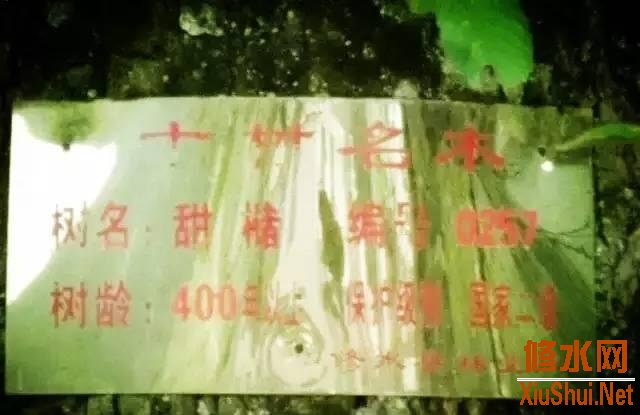 名木
树名：甜槠 编号 0257
树龄：400年以上 保护级别 国家二级
修水县林业
修水网
XiuShui.Net